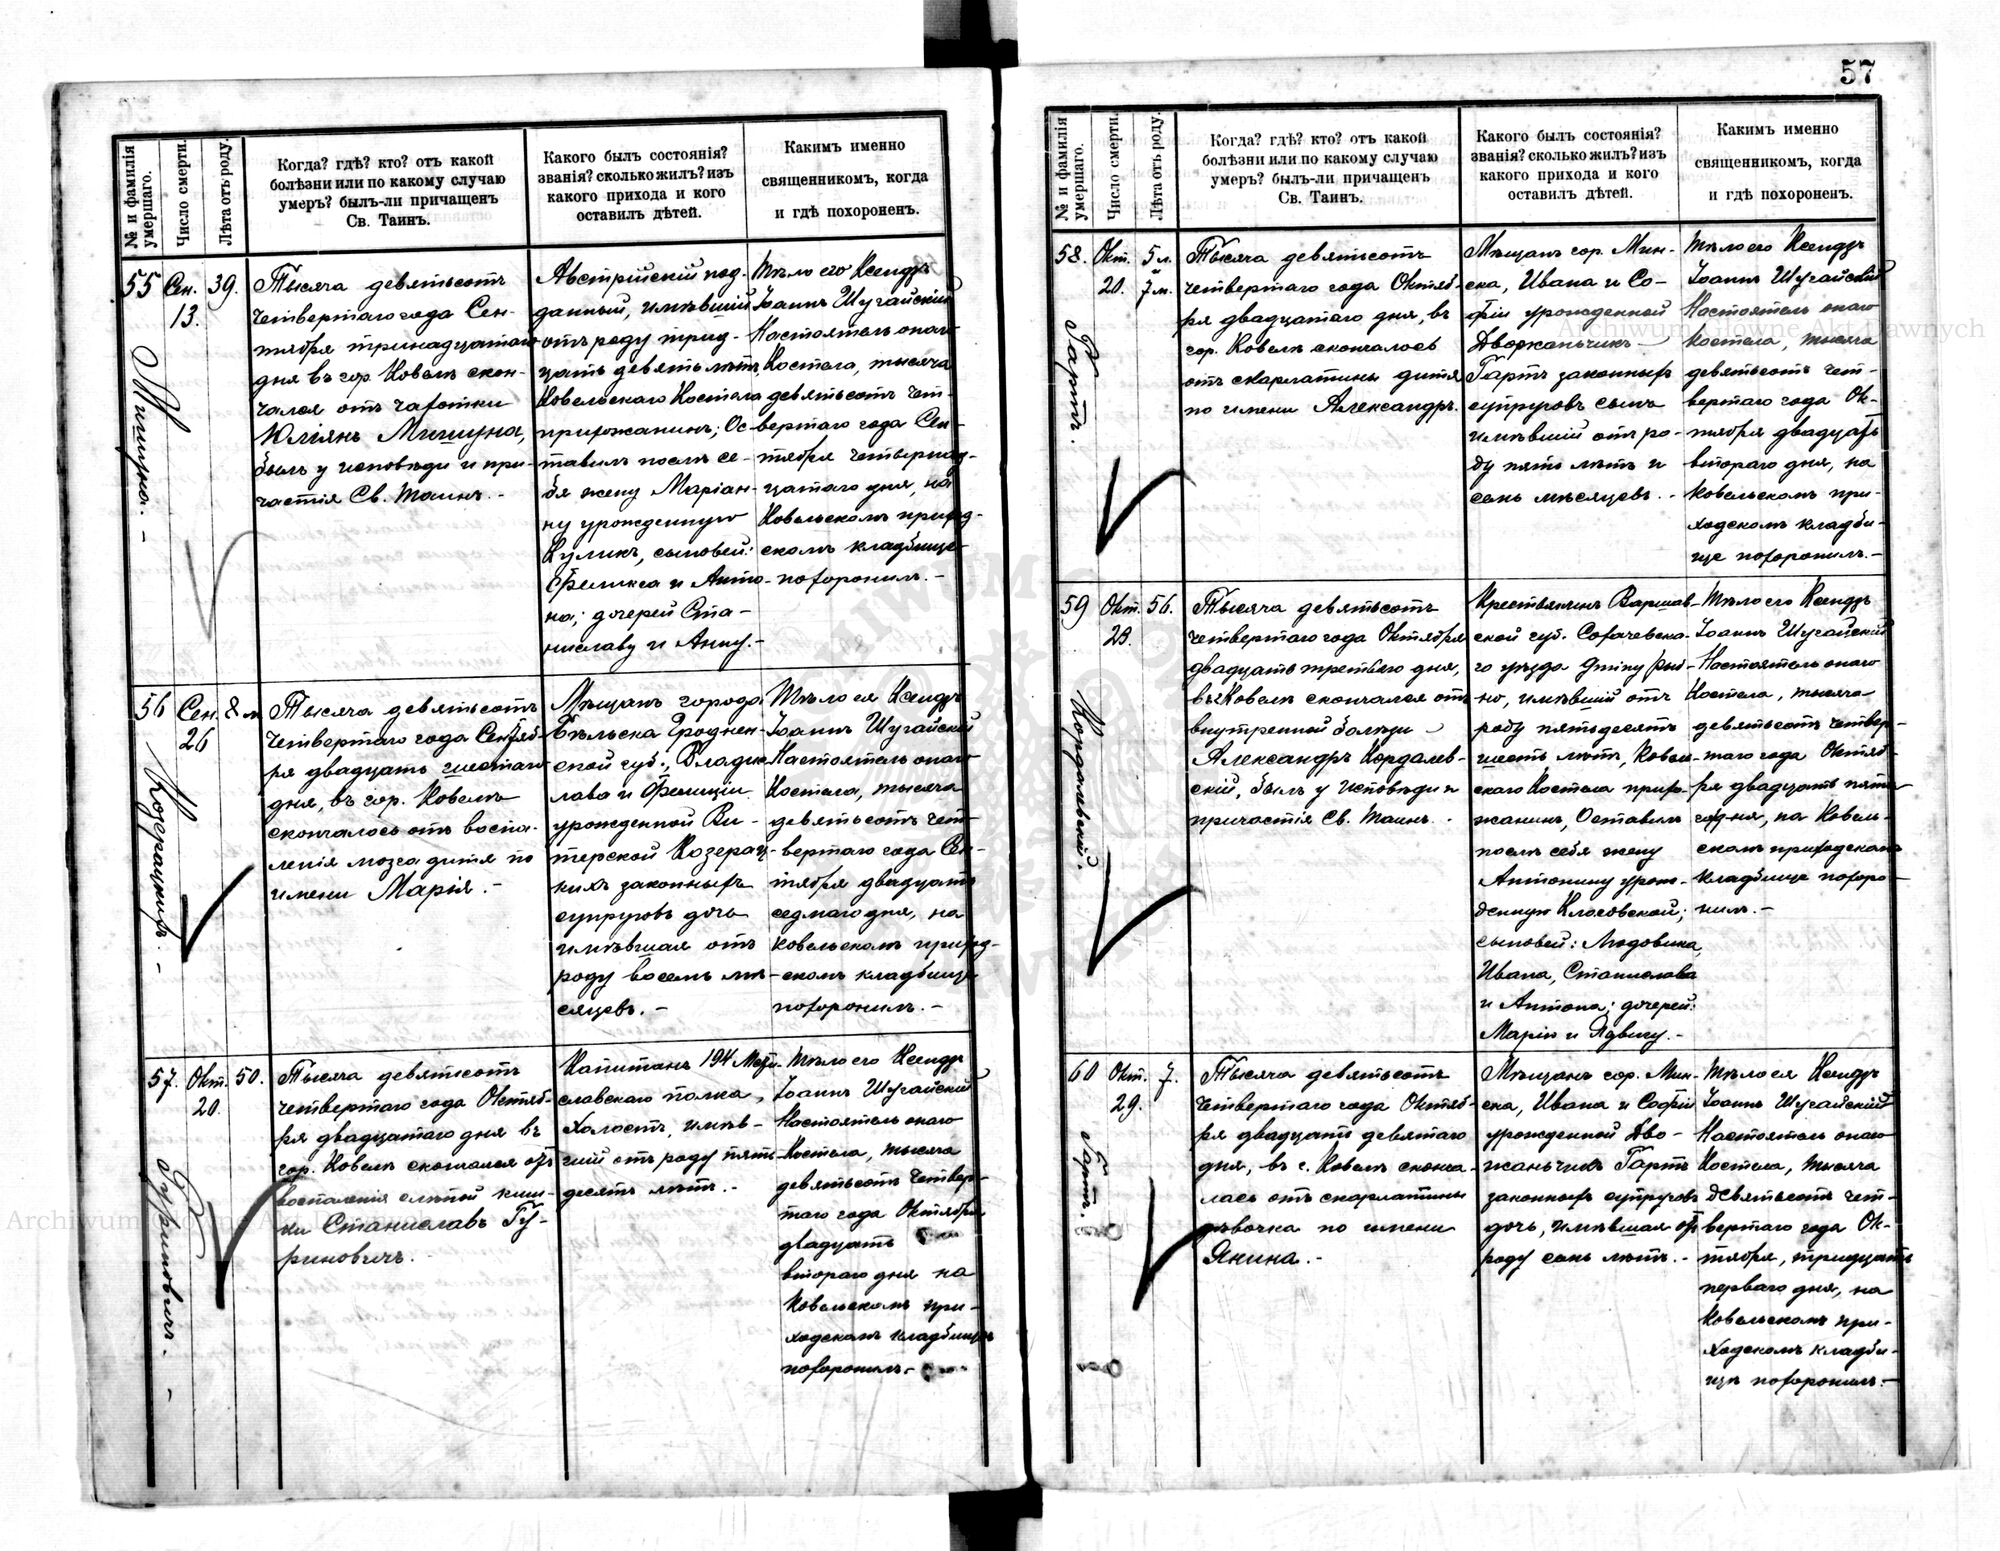 57
№ и фамилія умершаго.
Число смерти.
Лѣта отъ роду.
Когда? гдѣ? кто? отъ какой
болѣзни или по какому случаю
умеръ? былъ-ли причащенъ
Св. Таинъ.
Какого былъ состоянія?
званія? сколько жилъ? изъ
какого прихода и кого
оставилъ дѣтей.
Какимъ именно
священникомъ, когда
и гдѣ похороненъ.
55
Сен.
13.
39.
Мишуна. -
Тысяча девятьсотъ
четвертаго года Сен-
тября тринадцатаго
дня въ гор. Ковелѣ скон-
чался отъ чахотки
Юліянъ Мишуна,
былъ у исповѣди и при-
частія Св. Таинъ. -
Австрійскій под-
данный, имѣвшій
отъ роду трид-
цать девять лѣтъ
Ковельскаго Костела
прихожанинъ; Ос-
тавилъ послѣ се-
бя жену Маріан-
ну урожденную
Куликъ, сыновей:
Феликса и Анто-
на; дочерей Ста-
ниславу и Анну. -
Тѣло его Ксендзъ
Іоаннъ Шугайскій
Настоятель онаго
Костела, тысяча
девятьсотъ чет-
вертаго года Сен-
тября четырнад-
цатаго дня, на
Ковельскомъ приход-
скомъ кладбище
похоронилъ. -
56
Сен.
26
8 м.
Козерацкихъ. -
Тысяча девятьсотъ
четвертаго года Сентяб-
ря двадцать шестаго
дня, въ гор. Ковелѣ
скончалось отъ воспа-
ленія мозга дитя по
имени Марія. -
Мѣщанъ города
Бѣльска Гроднен-
ской губ., Владис-
лава и Фелиціи
урожденной Ви-
терской Козерац-
кихъ законныхъ
супруговъ дочь
имѣвшая отъ
роду восемь мѣ-
сяцевъ. -
Тѣло ея Ксендзъ
Іоаннъ Шугайскій
Настоятель онаго
Костела, тысяча
девятьсотъ чет-
вертаго года Сен-
тября двадцать
седмаго дня, на
Ковельскомъ приход-
скомъ кладбище
похоронилъ. -
57.
Окт.
20.
50.
Гуриновичъ. -
Тысяча девятьсотъ
четвертаго года Октяб-
ря двадцатаго дня въ
гор. Ковелѣ скончался отъ
воспаленія слѣпой киш-
ки Станиславъ Гу-
риновичъ.
Капитанъ 194 Мсти-
славскаго полка,
Холостъ, имѣв-
шій отъ роду пять-
десятъ лѣтъ. -
Тѣло его Ксендзъ
Іоаннъ Шугайскій
Настоятель онаго
Костела, тысяча
девятьсотъ четвер-
таго года Октября
двадцать
втораго дня на
Ковельскомъ при-
ходскомъ кладбищѣ
похоронилъ. -
№ и фамилія умершаго.
Число смерти.
Лѣта отъ роду.
Когда? гдѣ? кто? отъ какой
болѣзни или по какому случаю
умеръ? былъ-ли причащенъ
Св. Таинъ.
Какого былъ состоянія?
званія? сколько жилъ? изъ
какого прихода и кого
оставилъ дѣтей.
Какимъ именно
священникомъ, когда
и гдѣ похороненъ.
58.
Окт.
20.
5 л.
и
7 м.
Гартъ.
Тысяча девятьсотъ
четвертаго года Октяб-
ря двадцатаго дня, въ
гор. Ковелѣ скончалось
отъ скарлатины дитя
по имени Александръ.
Мѣщанъ гор. Мин-
ска, Ивана и Со-
фіи урожденной
Дворжаньчикъ
Гартъ законныхъ
супруговъ сынъ
имѣвшій отъ ро-
ду пять лѣтъ и
семь мѣсяцевъ. -
Тѣло его Ксендзъ
Іоаннъ Шугайскій
Настоятель онаго
Костела, тысяча
девятьсотъ чет-
вертаго года Ок-
тября двадцать
втораго дня, на
Ковельскомъ при-
ходскомъ кладби-
ще похоронилъ. -
59
Окт.
23.
56.
Кордалевскій.
Тысяча девятьсотъ
четвертаго года Октября
двадцать третьяго дня,
въ г. Ковелѣ скончался отъ
внутренной болѣзни
Александръ Кордалев-
скій, былъ у исповѣди и
причастія Св. Таинъ. -
Крестьянинъ Варшав-
ской губ. Сохачевска-
го уѣзда
но, имѣвшій отъ
роду пятьдесятъ
шесть лѣтъ, Ковель-
скаго Костела прихо-
жанинъ, Оставилъ
послѣ себя жену
Антонину урож-
денную Клосовской;
сыновей: Людовика,
Ивана, Станислава
и Антона; дочерей:
Марію и Ядвигу. -
Тѣло его Ксендзъ
Іоаннъ Шугайскій
Настоятель онаго
Костела, тысяча
девятьсотъ четвер-
таго года Октяб-
ря двадцать пята-
го дня, на Ковель-
скомъ приходскомъ
кладбище похоро-
нилъ. -
60
Окт.
29.
7.
Гартъ.
Тысяча девятьсотъ
четвертаго года Октяб-
ря двадцать девятаго
дня, въ г. Ковелѣ сконча-
лась отъ скарлатины
дѣвочка по имени
Янина. -
Мѣщанъ гор. Мин-
ска, Ивана и Софіи
урожденной Дво-
жаньчикъ Гартъ
законныхъ супруговъ
дочь, имѣвшая отъ
роду семь лѣтъ. -
Тѣло ея Ксендзъ
Іоаннъ Шугайскій
Настоятель онаго
Костела, тысяча
девятьсотъ чет-
вертаго года Ок-
тября, тридцать
перваго дня, на
Ковельскомъ при-
ходскомъ кладби-
щѣ похоронилъ. -
Archiwum Główne Akt Dawnych